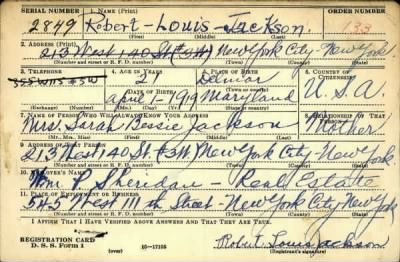 SERIAL NUMBER 1. NAME (Print) ORDER NUMBER
2849 Robert - Louis - Jackson.
(First) (Middle) (Last)
2. ADDRESS (Print)
213 West 140 St (5W) New York City - New York
(Number and street or R. F. D. number) (Town) (County) (State)
3. TELEPHONE 4. AGE IN YEARS 5. PLACE OF BIRTH 6. COUNTRY OF CITIZENSHIP
21 Delmar
DATE OF BIRTH (Town or county)
April - 1 - 1919 Maryland U.S.A.
(Exchange) (Number) (Mo.) (Day) (Yr.) (State or country)
7. NAME OF PERSON WHO WILL ALWAYS KNOW YOUR ADDRESS 8. RELATIONSHIP OF THAT PERSON
Mrs. Sarah Jessie Jackson Mother
(Mr., Mrs., Miss) (First) (Middle) (Last)
9. ADDRESS OF THAT PERSON
213 West 140 St (5W) New York City - New York
(Number and street or R. F. D. number) (Town) (County) (State)
10. EMPLOYER'S NAME
Wm P. Sheridan - Real Estate
11. PLACE OF EMPLOYMENT OR BUSINESS
545 West 111 th Street - New York City New York
(Number and street or R. F. D. number) (Town) (County) (State)
I AFFIRM THAT I HAVE VERIFIED ABOVE ANSWERS AND THAT THEY ARE TRUE.
REGISTRATION CARD
D. S. S. FORM 1 (over) 16-17105 Robert Louis Jackson
(Registrant's signature)